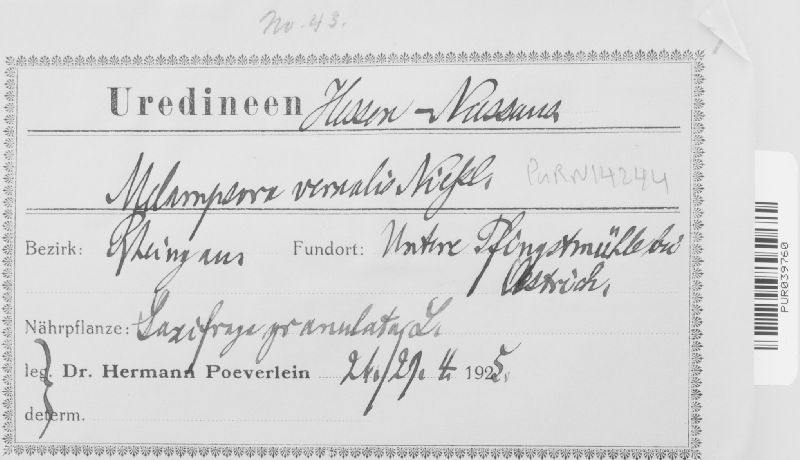 No. 43.
Uredineen Hessen-Nassaus
Melampsora vernalis Nießl. PURN14244
Bezirk: Rheingau. Fundort: Untere Pfingstmühle bei
Östrich.
Nährpflanze: Saxifraga granulata L.
leg. Dr. Hermann Poeverlein 24./29. 4. 1925.
determ.
PUR039760